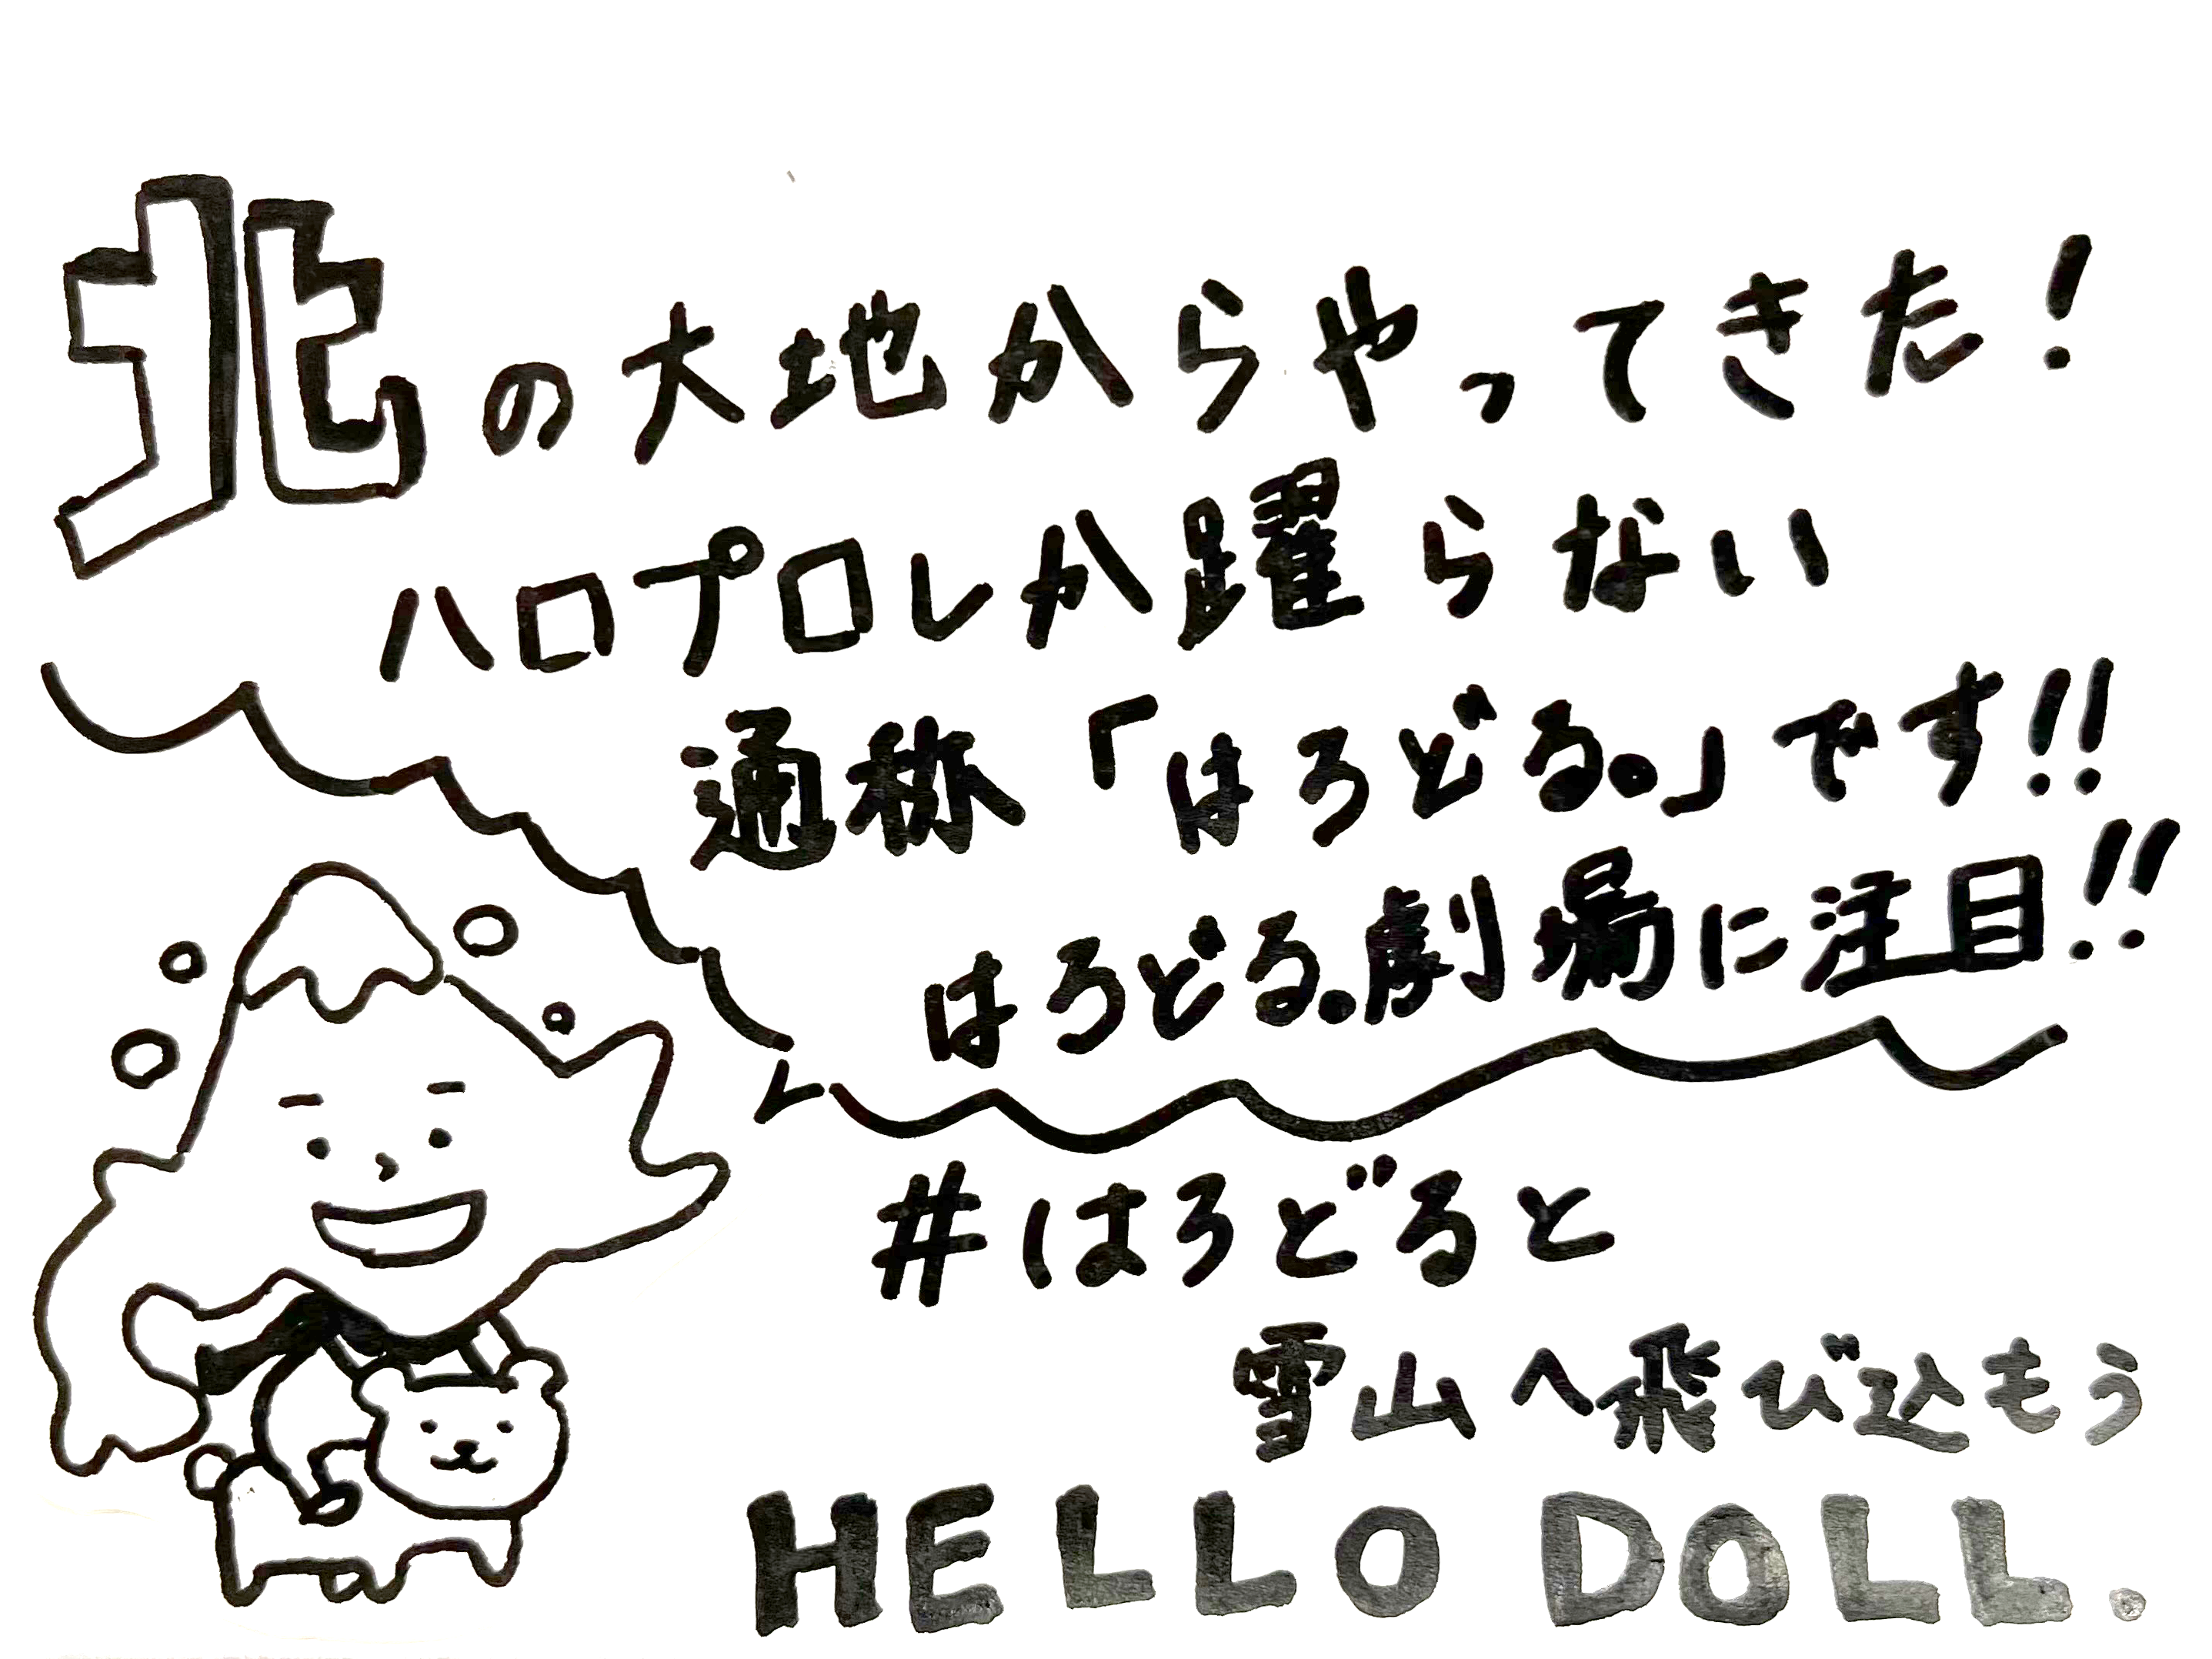 北の大地からやってきた!
ハロプロしか躍らない
通称「はろどる。」です!!
はろどる。劇場に注目!!
#はろどると
雪山へ飛び込もう
HELLO DOLL.